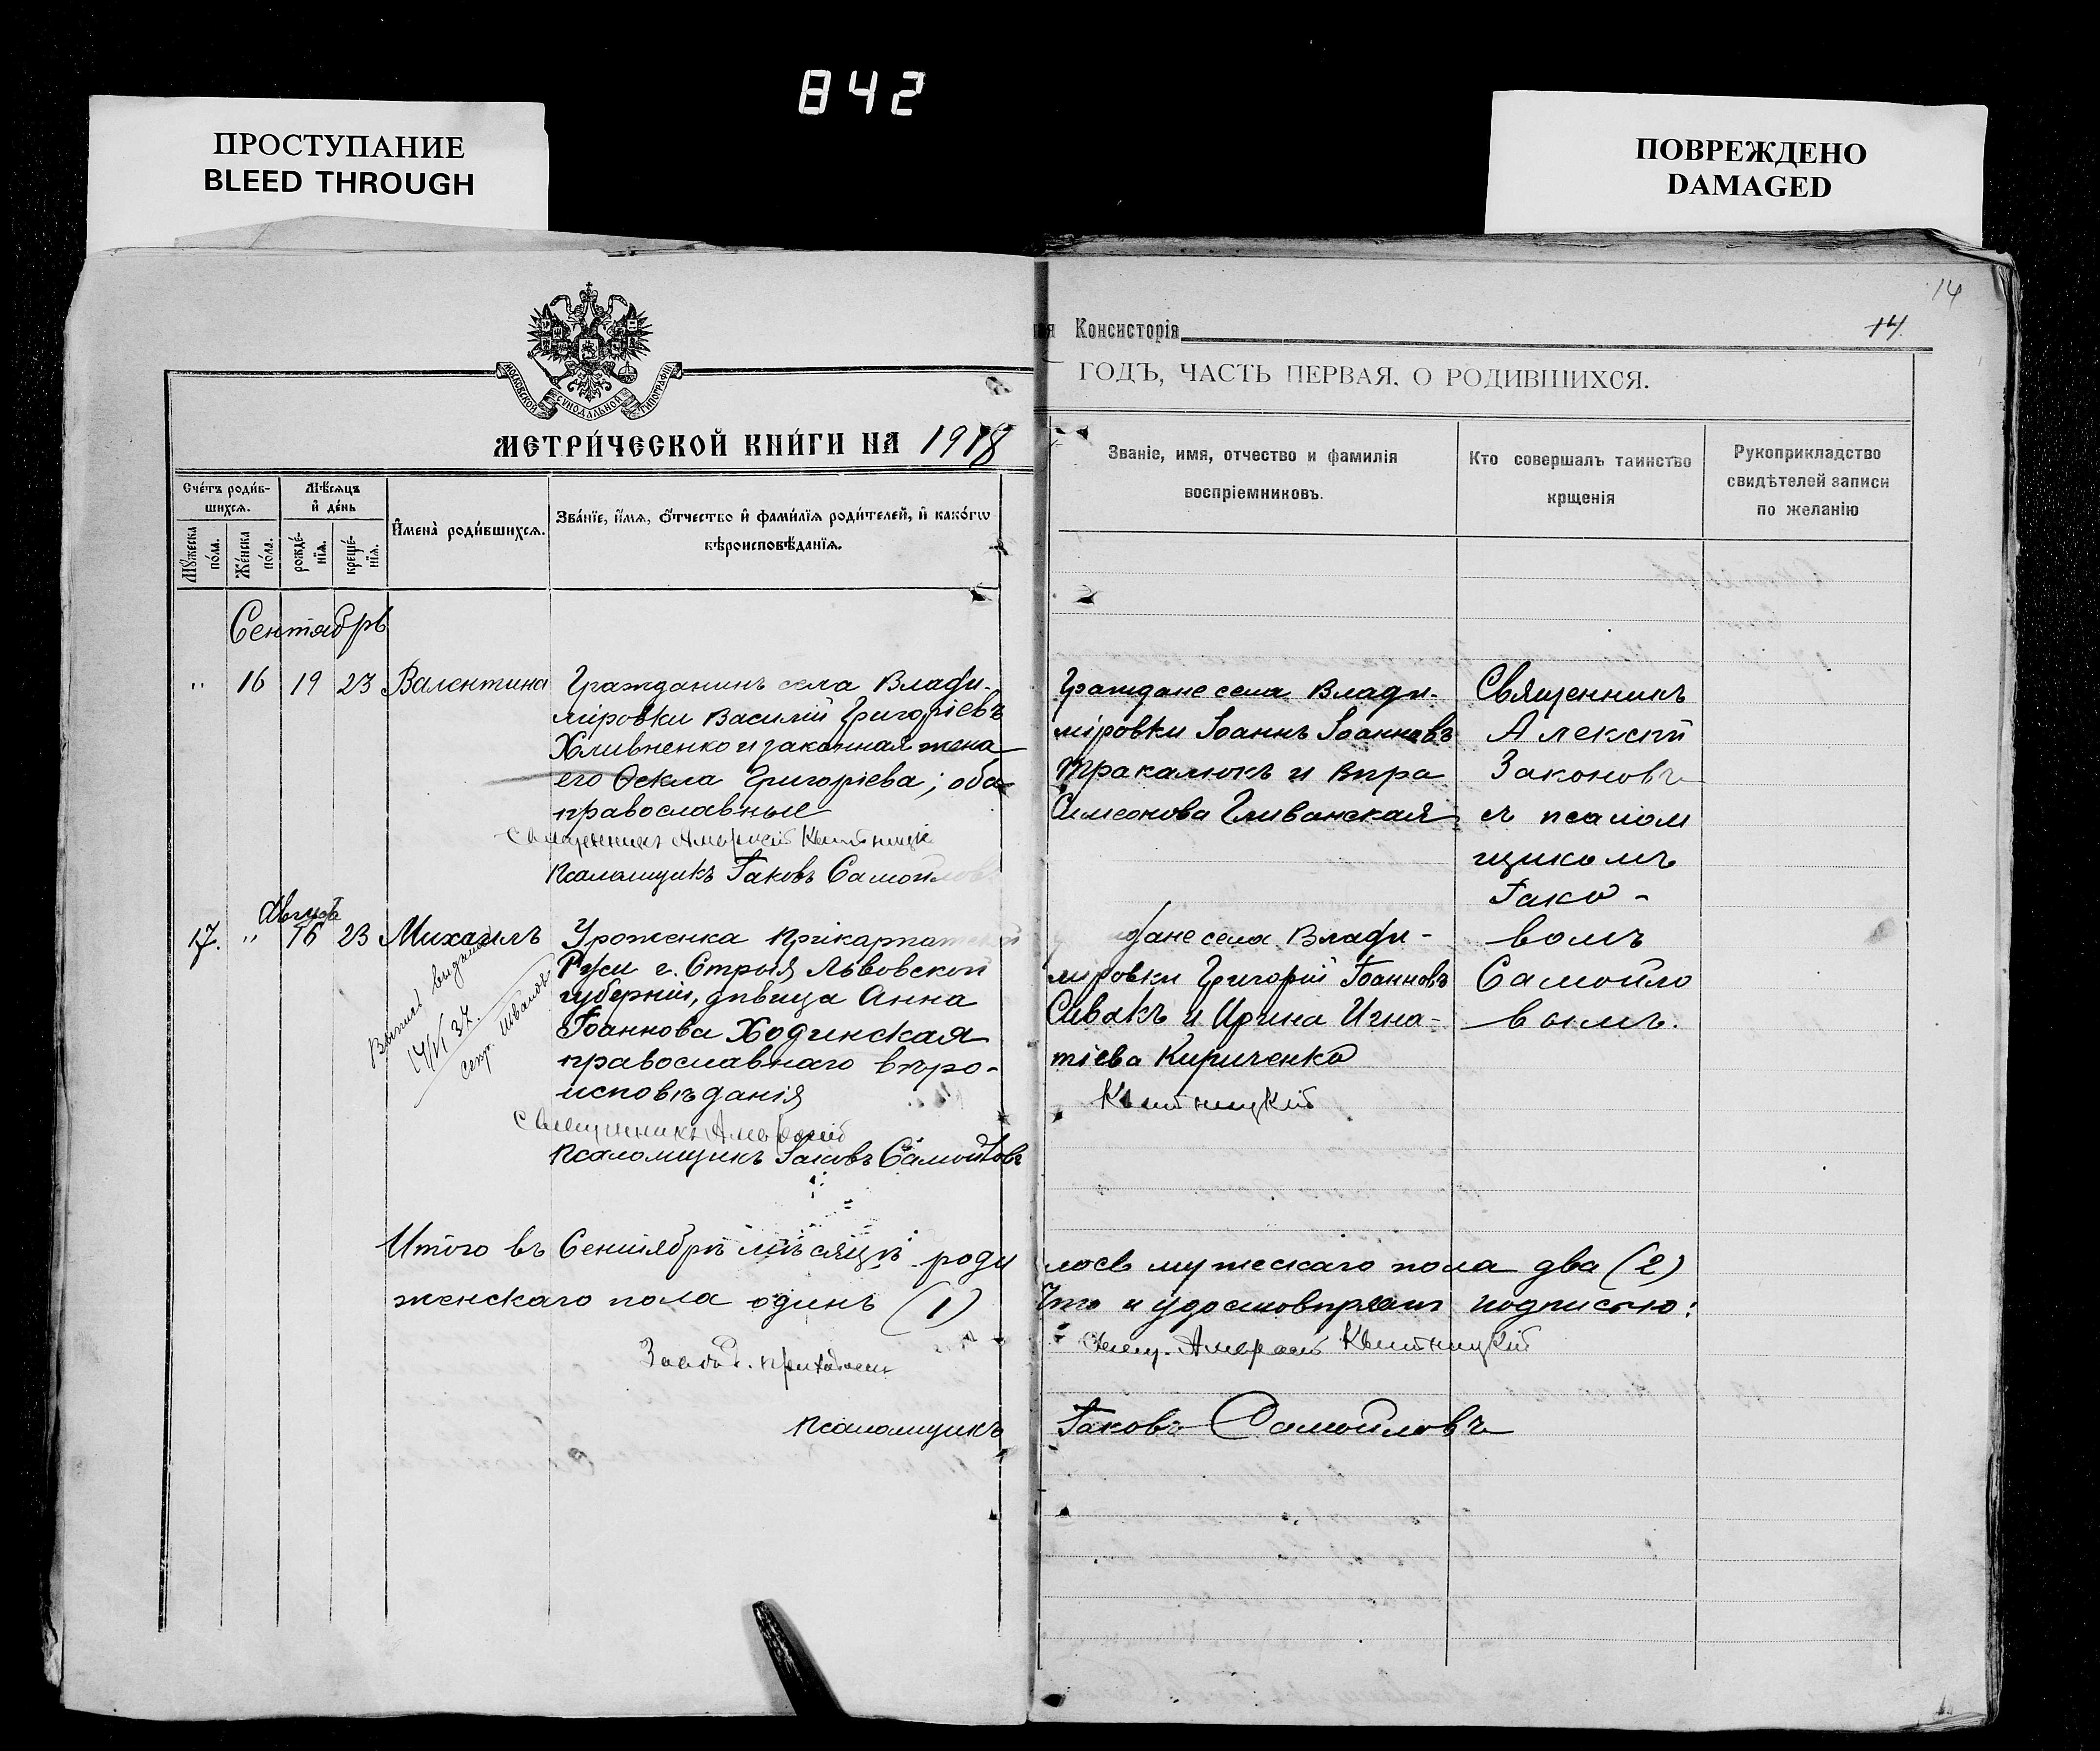 842
ПРОСТУПАНИЕ
BLEED THROUGH
ПОВРЕЖДЕНО
DAMAGED
14
Консисторія
14.
МОСКОВСКОЙ СѴНОДАЛЬНОЙ ТИПОГРАФІИ
ГОДЪ, ЧАСТЬ ПЕРВАЯ, О РОДИВШИХСЯ.
МЕТРИ́ЧЕСКОЙ КНИ́ГИ НА 1918
Счетъ роди́в-
шихсѧ.
Мѣсѧцъ
и҆ де́нь
Мꙋжеска
по́ла.
Же́нска
по́ла.
рожде́-
нїѧ.
креще́-
нїѧ.
И҆мена̀ роди́вшихсѧ.
Зва́нїе, и҆́мѧ, ѻ҆́тчество и҆ фами́лїѧ роди́телей, и҆ како́гѡ
вѣроисповѣ́данїѧ.
Званіе, имя, отчество и фамилія
воспріемниковъ.
Кто совершалъ таинство
крщенія
Рукоприкладство
свидѣтелей записи
по желанію
Сентябрь
" 16 19 23 Валентина
Гражданинъ села Влади-
міровки Василій Григоріевъ
Хливненко и законная жена
его Ѳекла Григоріева; оба
православные
Священникъ Амвросій Квитницкій
Псаломщикъ Іаковъ Самойлов
Граждане села Влади-
міровки Іоаннъ Іоанновъ
Тракалюкъ и Вѣра
Симеонова Гливанская
Священникъ
Алексѣй
Законовъ
съ псалом
щикомъ
Іако-
вомъ
Самойло
вымъ.
Августъ
17. " 16 23 Михаилъ
Выпись выдана
14/VI 37.
секр. Иванова
Уроженка Прікарпатской
Руси г. Стрыя Львовской
губерніи, дѣвица Анна
Іоаннова Ходинская
православнаго вѣро-
исповѣданія
Священникъ Амвросій
Квитницкій
Псаломщикъ Іаковъ Самойловъ
дане села Влади-
міровки Григорій Іоанновъ
Сивакъ и Ирина Игна-
тіева Кириченко
Итого въ Сентябрѣ мѣсяцѣ роди
лось мужескаго пола два (2)
женскаго пола одинъ (1)
Что и удостовѣряемъ подписью:
Завѣд. приходомъ
Свящ. Амвросій Квитницкій
Псаломщикъ Іаковъ Самойловъ